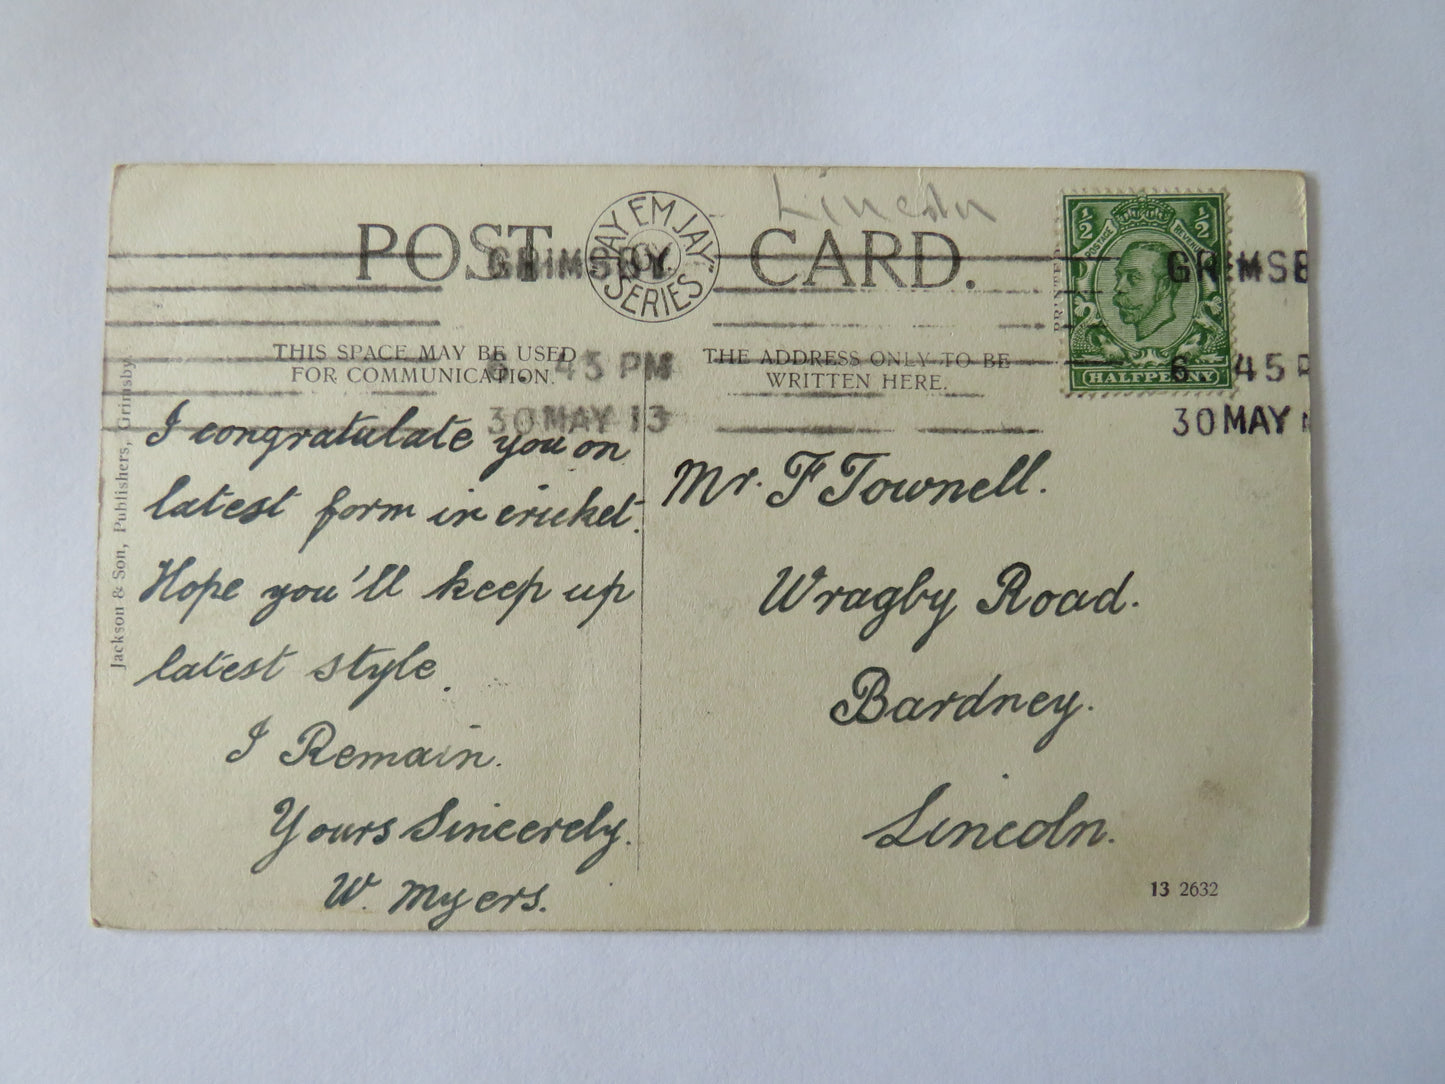 Lincoln
POST CARD.
"JAY EM JAY"
SERIES
GRIMSBY.
6 45 PM
30 MAY 13
GRIMSB
6 45 P
30 MAY
½ ½
POSTAGE REVENUE
HALFPENNY
THIS SPACE MAY BE USED
FOR COMMUNICATION.
THE ADDRESS ONLY TO BE
WRITTEN HERE.
Jackson & Son, Publishers, Grimsby.
I congratulate you on
latest form in cricket.
Hope you'll keep up
latest style.
I Remain.
Yours Sincerely.
W. Myers.
Mr. F Townell.
Wragby Road.
Bardney.
Lincoln.
13 2632